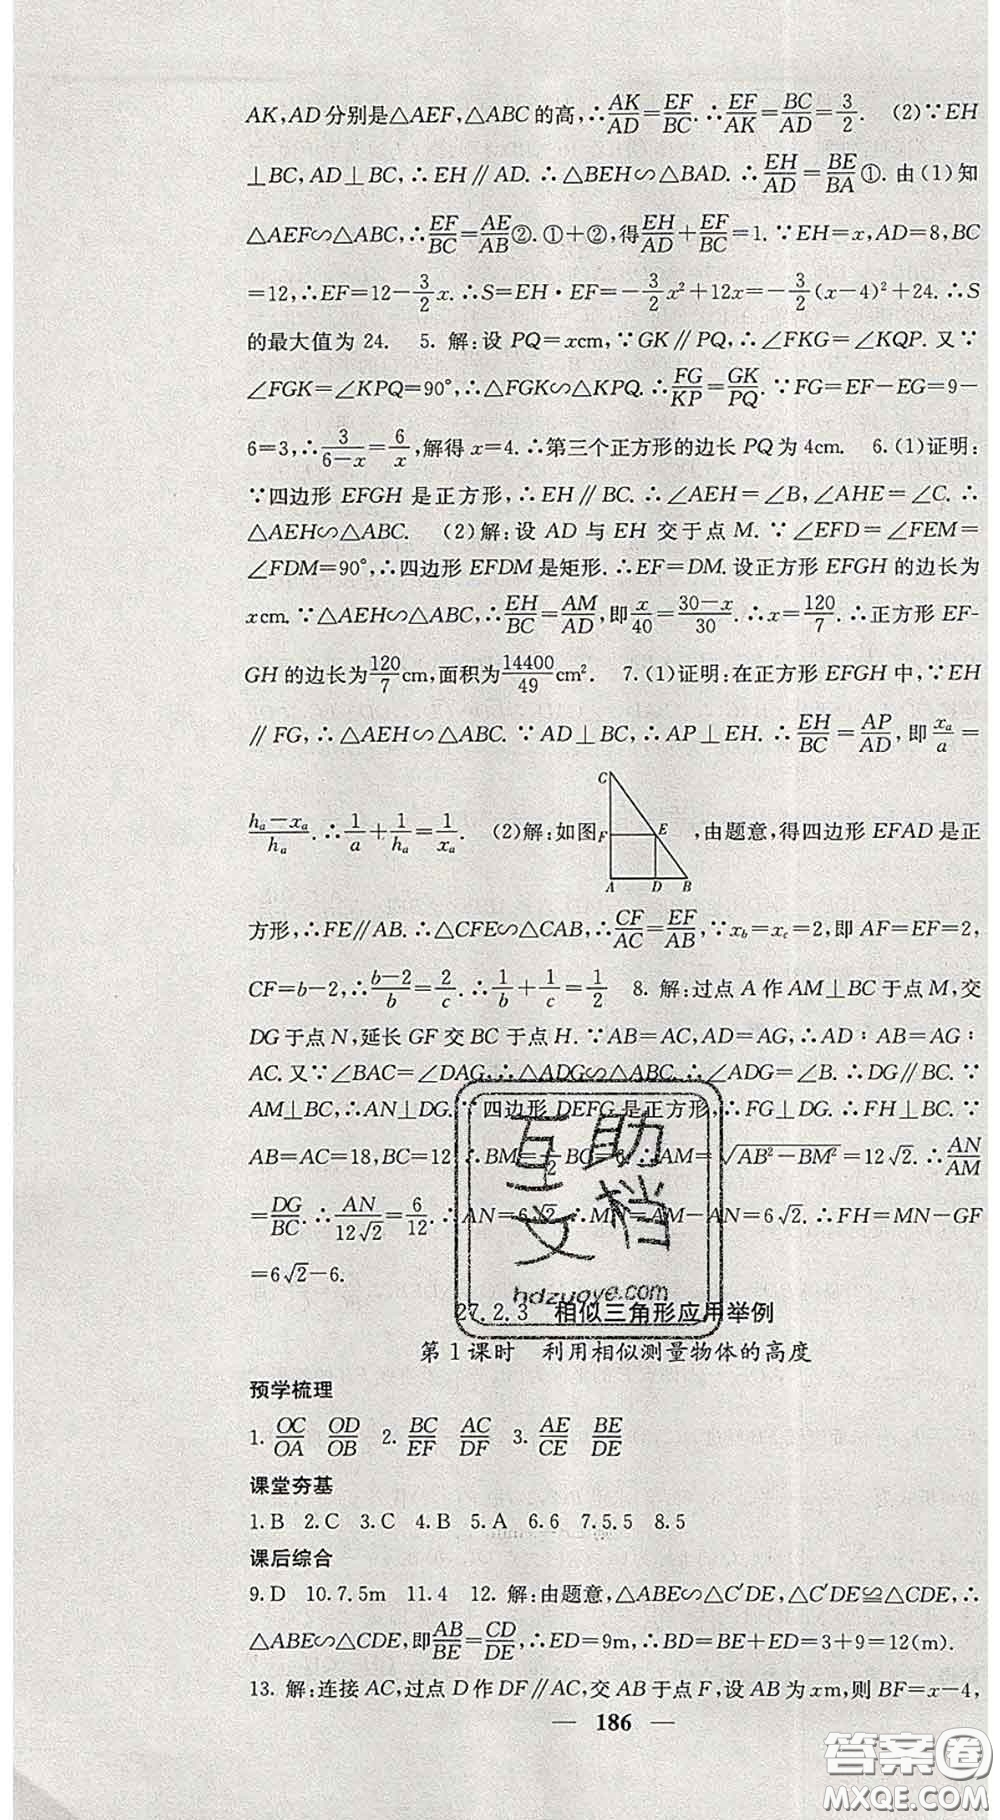 AK,AD分别是△AEF,△ABC的高,∴AK/AD=EF/BC.∴EF/AK=BC/AD=3/2. (2)∵EH
⊥BC,AD⊥BC,∴EH∥AD.∴△BEH∽△BAD.∴EH/AD=BE/BA①.由(1)知
△AEF∽△ABC,∴EF/BC=AE/AB②.①+②,得EH/AD+EF/BC=1.∵EH=x,AD=8,BC
=12,∴EF=12-3/2x.∴S=EH·EF=-3/2x²+12x=-3/2(x-4)²+24.∴S
的最大值为24. 5.解:设PQ=xcm,∵GK∥PQ,∴∠FKG=∠KQP.又∵
∠FGK=∠KPQ=90°,∴△FGK∽△KPQ.∴FG/KP=GK/PQ.∵FG=EF-EG=9-
6=3,∴3/(6-x)=6/x,解得x=4.∴第三个正方形的边长PQ为4cm. 6.(1)证明:
∵四边形EFGH是正方形,∴EH∥BC.∴∠AEH=∠B,∠AHE=∠C.∴
△AEH∽△ABC. (2)解:设AD与EH交于点M.∵∠EFD=∠FEM=
∠FDM=90°,∴四边形EFDM是矩形.∴EF=DM.设正方形EFGH的边长为
xcm.∵△AEH∽△ABC,∴EH/BC=AM/AD,即x/40=(30-x)/30.∴x=120/7.∴正方形EF-
GH的边长为120/7cm,面积为14400/49cm². 7.(1)证明:在正方形EFGH中,∵EH
∥FG,∴△AEH∽△ABC.∵AD⊥BC,∴AP⊥EH.∴EH/BC=AP/AD,即xₐ/a=
(hₐ-xₐ)/hₐ.∴1/a+1/hₐ=1/xₐ. (2)解:如图 C F E A D B ,由题意,得四边形EFAD是正
方形,∴FE∥AB.∴△CFE∽△CAB,∴CF/AC=EF/AB,∵x_b=x_c=2,即AF=EF=2,
CF=b-2,∴(b-2)/b=2/c.∴1/b+1/c=1/2 8.解:过点A作AM⊥BC于点M,交
DG于点N,延长GF交BC于点H.∵AB=AC,AD=AG,∴AD∶AB=AG∶
AC.又∵∠BAC=∠DAG,∴△ADG∽△ABC.∴∠ADG=∠B.∴DG∥BC.∵
AM⊥BC,∴AN⊥DG.∵四边形DEFG是正方形,∴FG⊥DG.∴FH⊥BC.∵
AB=AC=18,BC=12,∴BM=1/2BC=6.∴AM=√(AB²-BM²)=12√2.∴AN/AM
=DG/BC.∴AN/12√2=6/12.∴AN=6√2.∴MN=AM-AN=6√2.∴FH=MN-GF
=6√2-6.
互助文档
hdzuoye.com
27.2.3 相似三角形应用举例
第1课时 利用相似测量物体的高度
预学梳理
1.OC/OA OD/OB 2.BC/EF AC/DF 3.AE/CE BE/DE
课堂夯基
1.B 2.C 3.C 4.B 5.A 6.6 7.5.5 8.5
课后综合
9.D 10.7.5m 11.4 12.解:由题意,△ABE∽△C'DE,△C'DE≌△CDE,∴
△ABE∽△CDE,即AB/BE=CD/DE,∴ED=9m,∴BD=BE+ED=3+9=12(m).
13.解:连接AC,过点D作DF∥AC,交AB于点F,设AB为xm,则BF=x-4,
— 186 —
答案圈
MXQE.COM